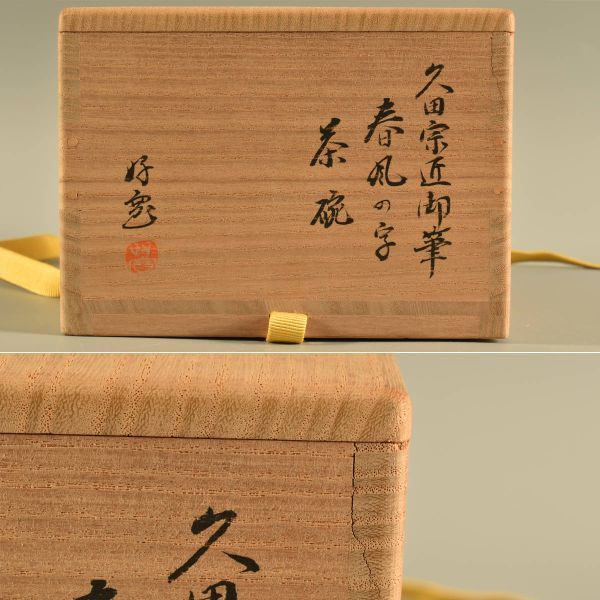 久田宗近御筆
春風の字
茶碗
久田